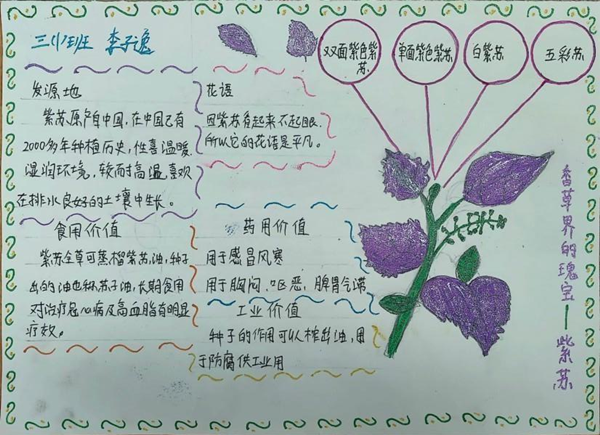 三(1)班 李子逸
双面紫色紫
苏
单面紫色紫苏
白紫苏
五彩苏
发源地
紫苏原产自中国,在中国已有
2000多年种植历史,性喜温暖
湿润环境,较耐高温,喜欢
在排水良好的土壤中生长。
花语
因紫苏看起来不起眼
所以它的花语是平凡。
食用价值
紫苏全草可蒸榴紫苏油,种子
出的油也称苏子油,长期食用
对治疗冠心病及高血脂有明显
疗效。
药用价值
用于感冒风寒
用于胸闷、呕恶,脾胃气滞
工业价值
种子的作用可以榨出油,用
于防腐供工业用
香草界的瑰宝—紫苏